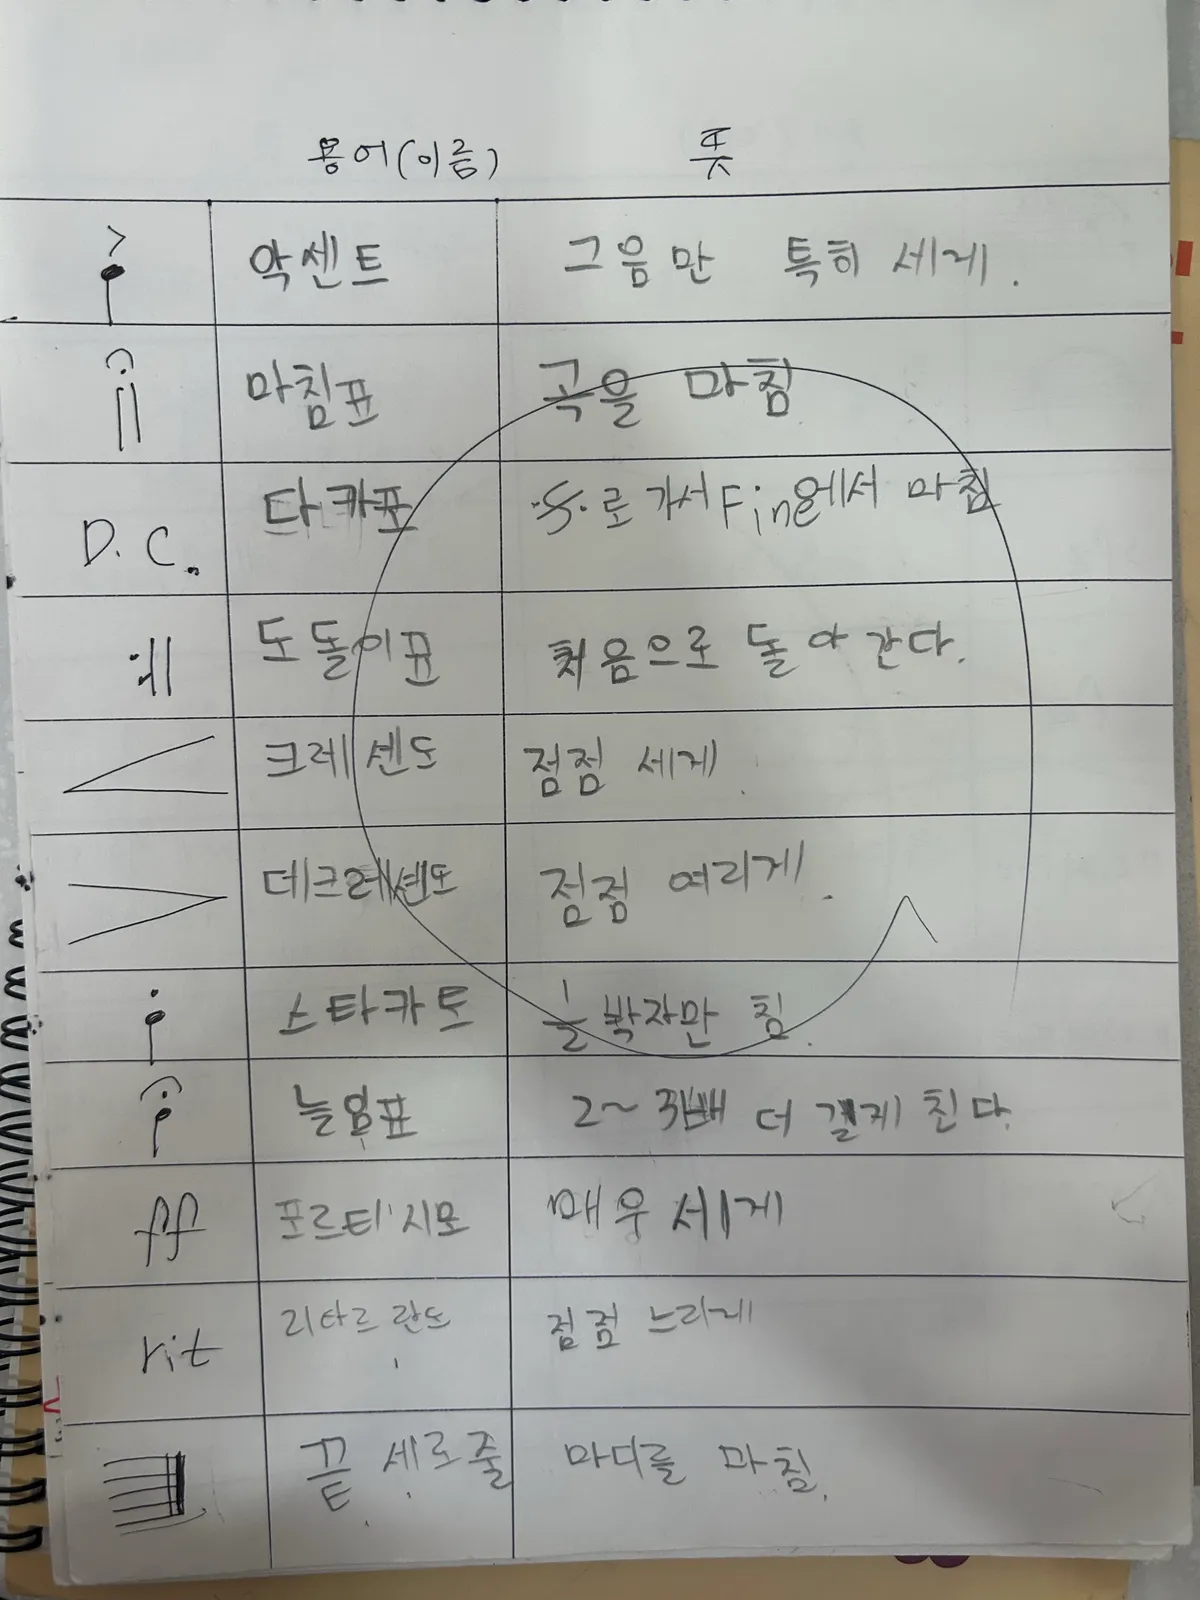 용어(이름) 뜻
악센트 그음만 특히 세게.
마침표 곡을 마침
D.C. 다카포 로 가서 Fine에서 마침
도돌이표 처음으로 돌아간다.
크레센도 점점 세게.
데크레센도 점점 여리게.
스타카토 ½박자만 침.
늘임표 2~3배 더 길게 친다.
ff 포르티시모 매우 세게
rit 리타르란도 점점 느리게
끝 세로줄 마디를 마침.